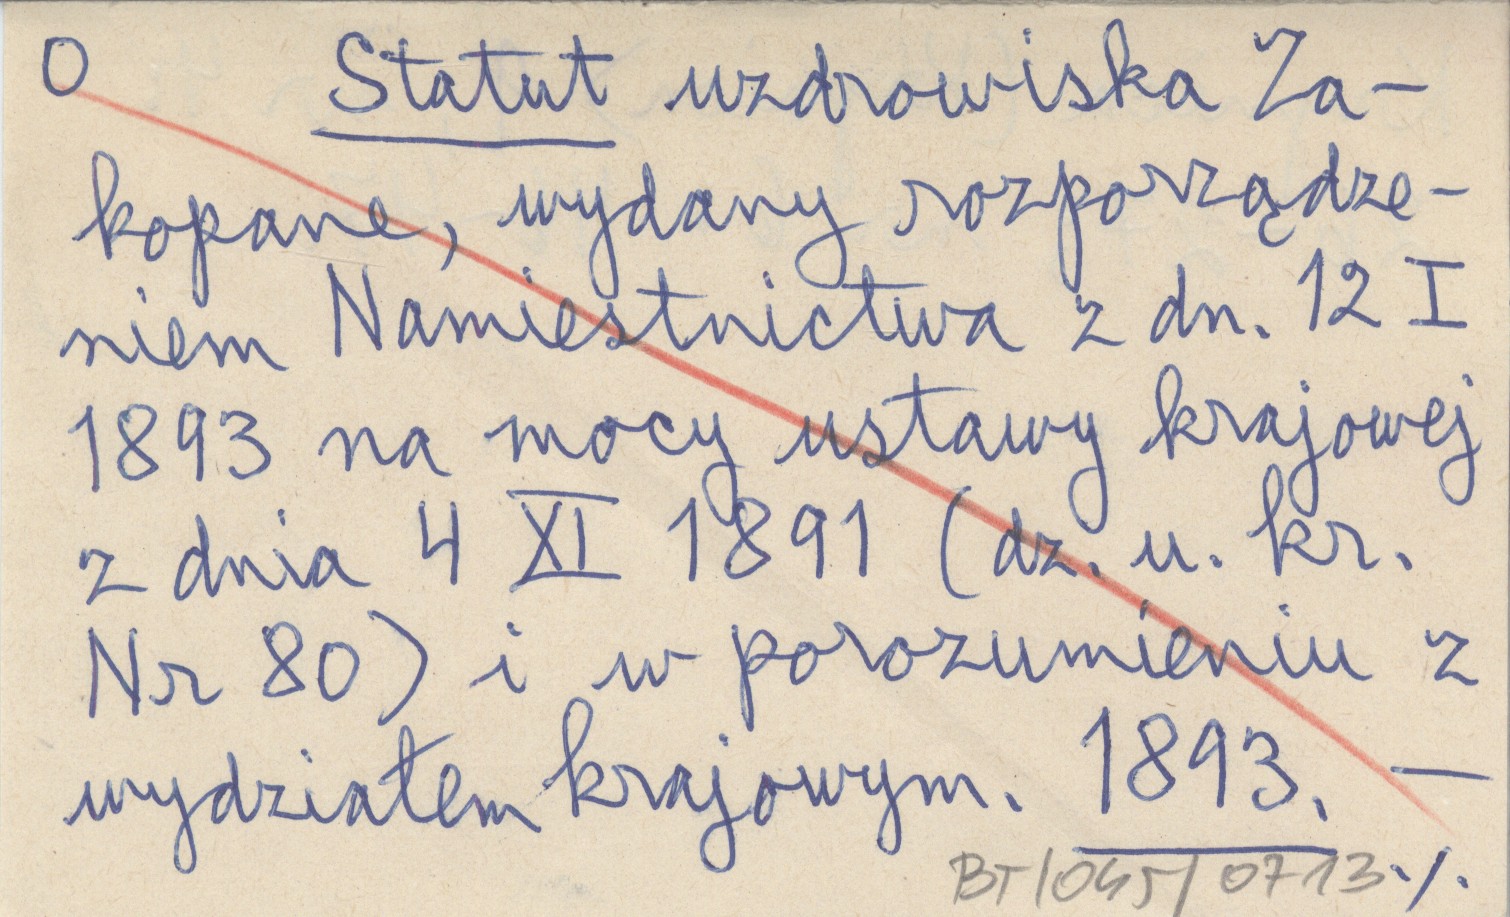 O Statut uzdrowiska Za-
kopane, wydany rozporządze-
niem Namiestnictwa z dn. 12 I
1893 na mocy ustawy krajowej
z dnia 4 XI 1891 (dz. u. kr.
Nr 80) i w porozumieniu z
wydziałem krajowym. 1893. —
BT/045/0713 ./.